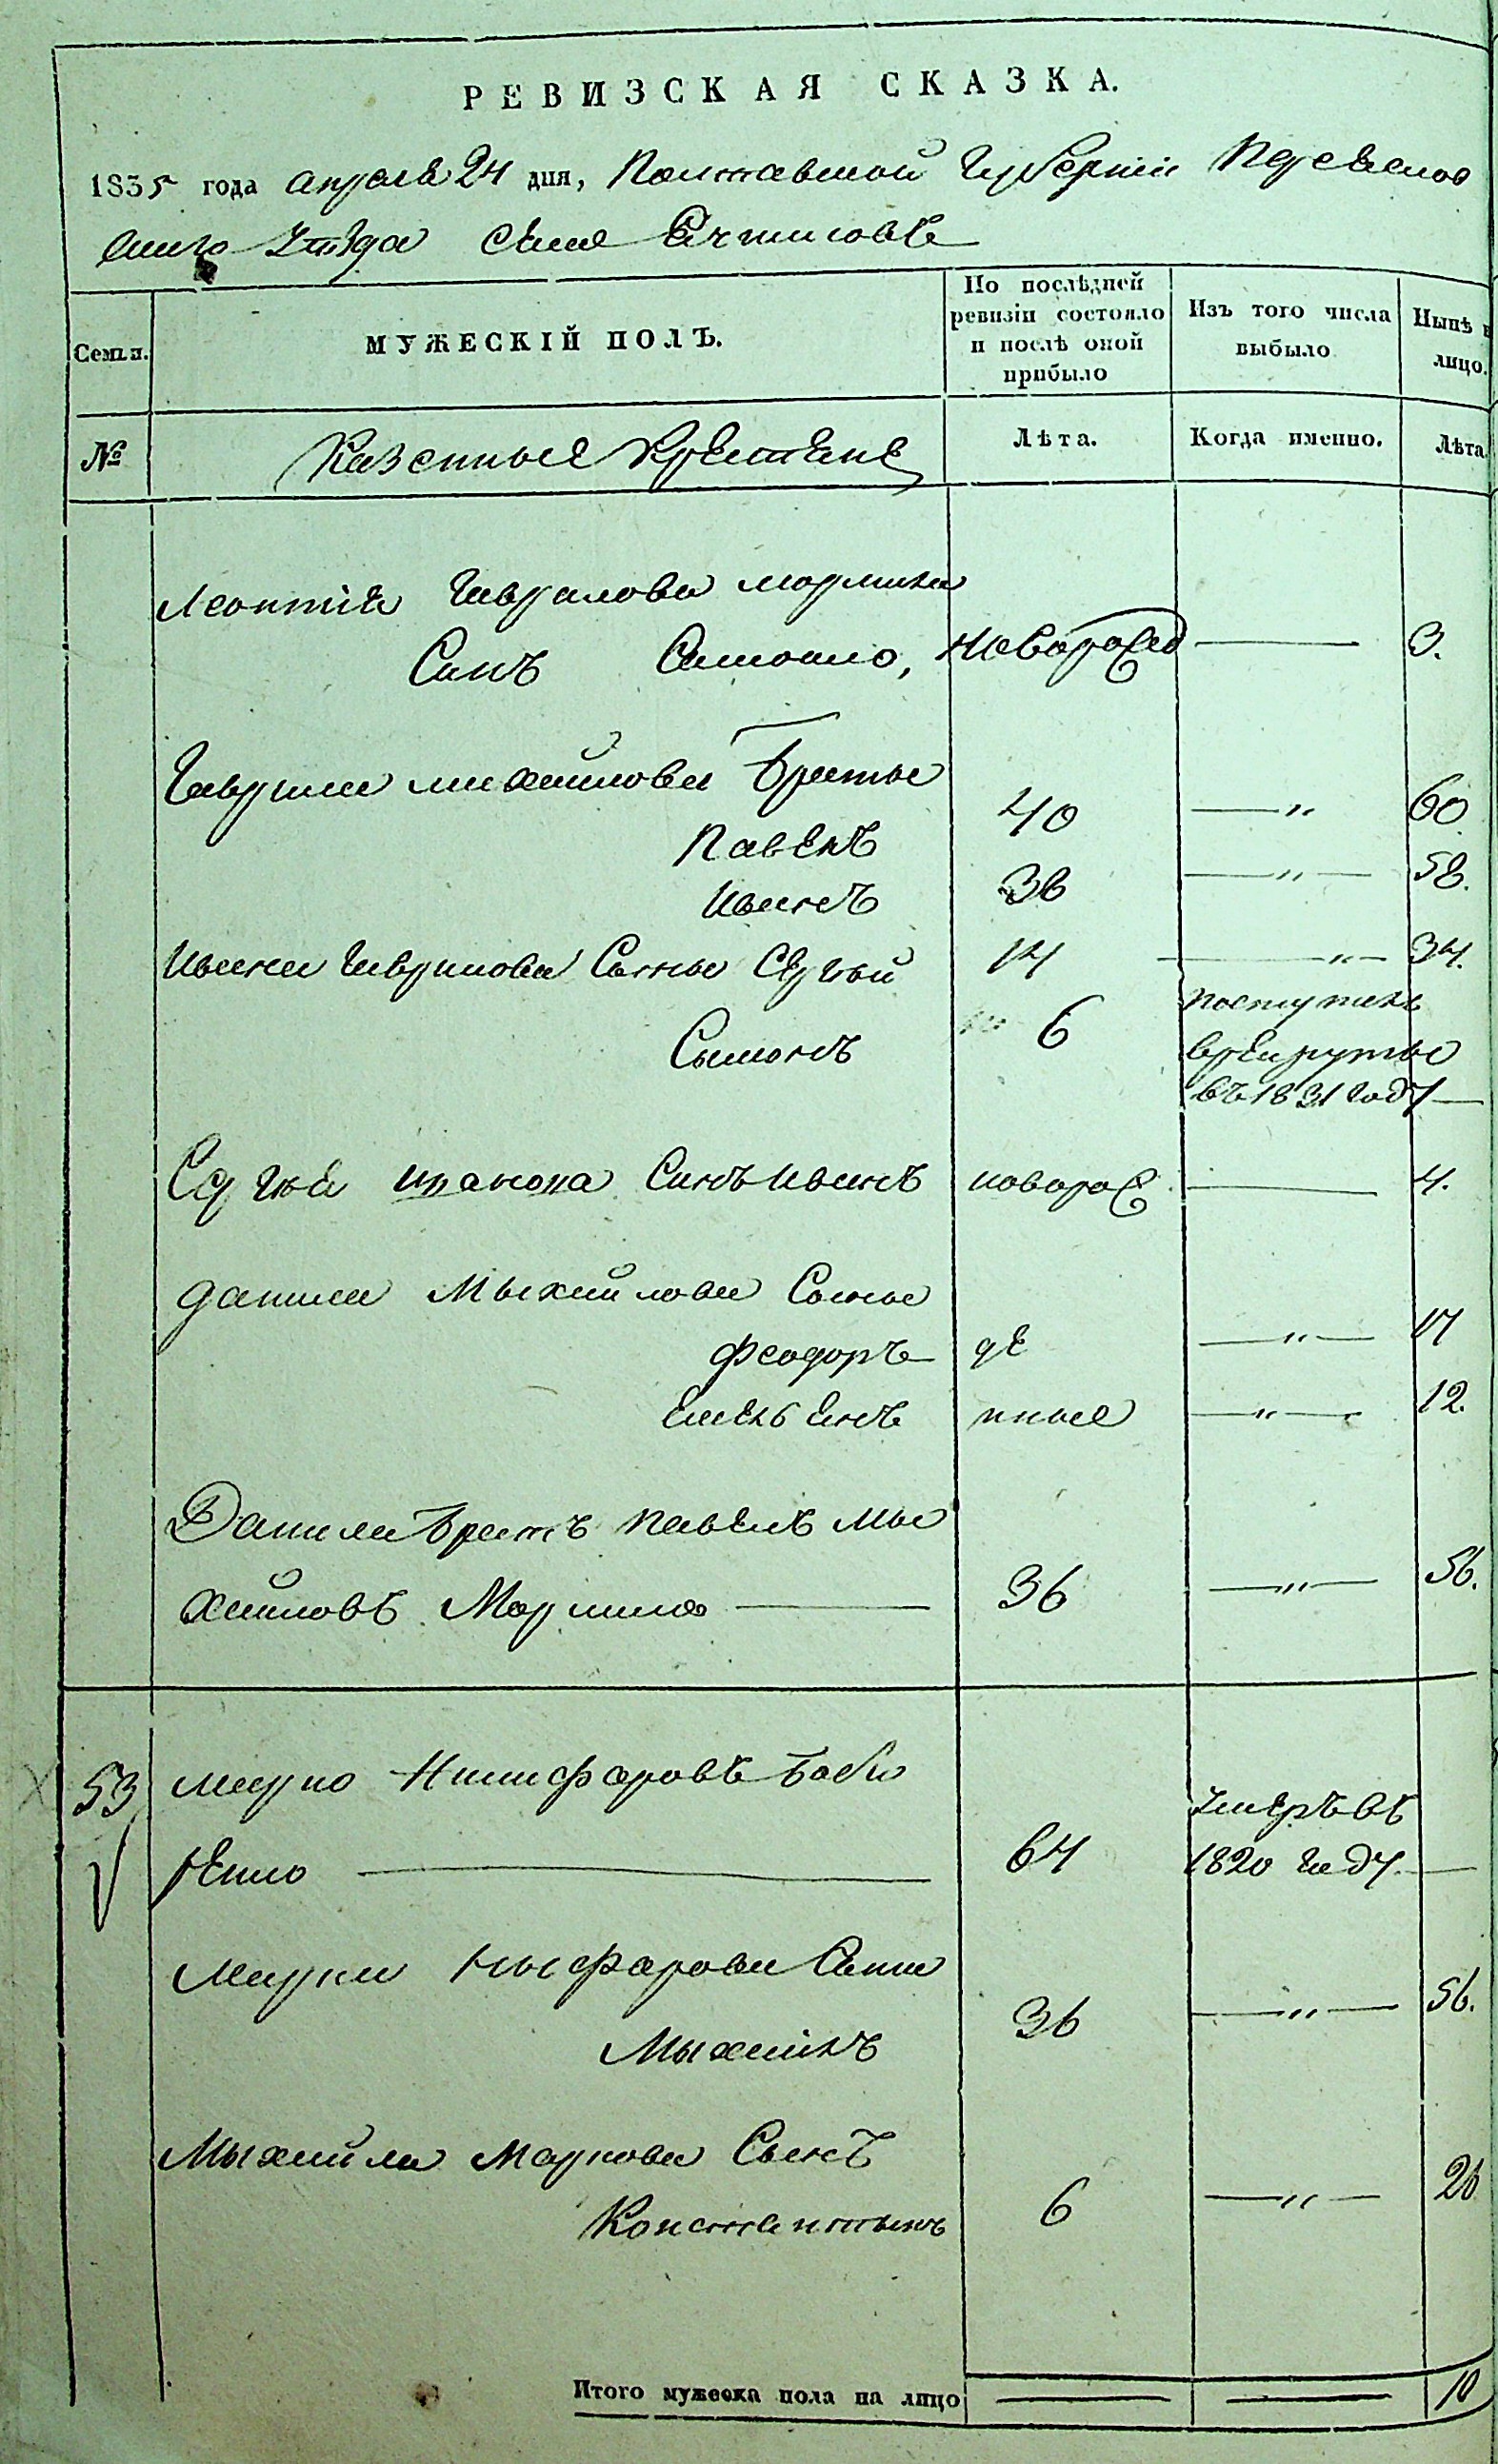 РЕВИЗСКАЯ СКАЗКА.
1835 года апреля 24 дня, Полтавской Губернии Переяслов
скаго уезда села
Семья.
МУЖЕСКІЙ ПОЛЪ.
По послѣдней ревизіи состояло и послѣ оной прибыло
Изъ того числа выбыло
Нынѣ в лицо.
№
Казенные Крестяне
Лѣта.
Когда именно.
Лѣта.
Леонтія Гаврилова
Синъ новорожд 3.
Гаврила михайлова Братье
Павелъ 40 — " 60
Иванъ 38 — " — 58.
Ивана Гаврилова Сынье Сергій 14 — " — 34.
Сымонъ 6 поступилъ
врекрутье
въ 1831 году —
Сергія иванова Синъ Иванъ новорож — 4.
Данила Мыхайлова Сынье
Феодоръ — " — 17
Емельянъ — " — 12.
Данила Братъ Павелъ Мы
хайловъ — 36 — " — 56.
53 марко Никифоровъ Боби
ренко — 64 умеръ въ
1820 году. —
Марки Ныкфорова Сынъ
Мыхаилъ 36 — " — 56.
Мыхайла Маркова Сынъ
Константынъ 6 — " — 26
Итого мужеска пола на лицо — — 10